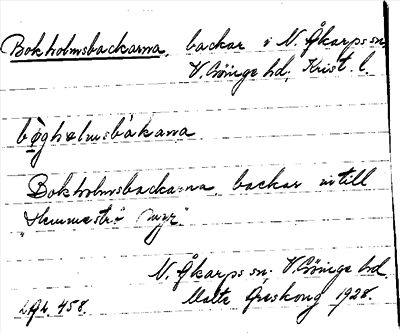 Bokholmsbackarna, backar i N. Åkarps sn,
V. Göinge hd, Krist. l.
bøghelmsbakana
Bokholmsbackarna, backar intill
"Hemmeströ myr."
N. Åkarps sn. V. Göinge hd
Malte Areskoug 1928.
458.